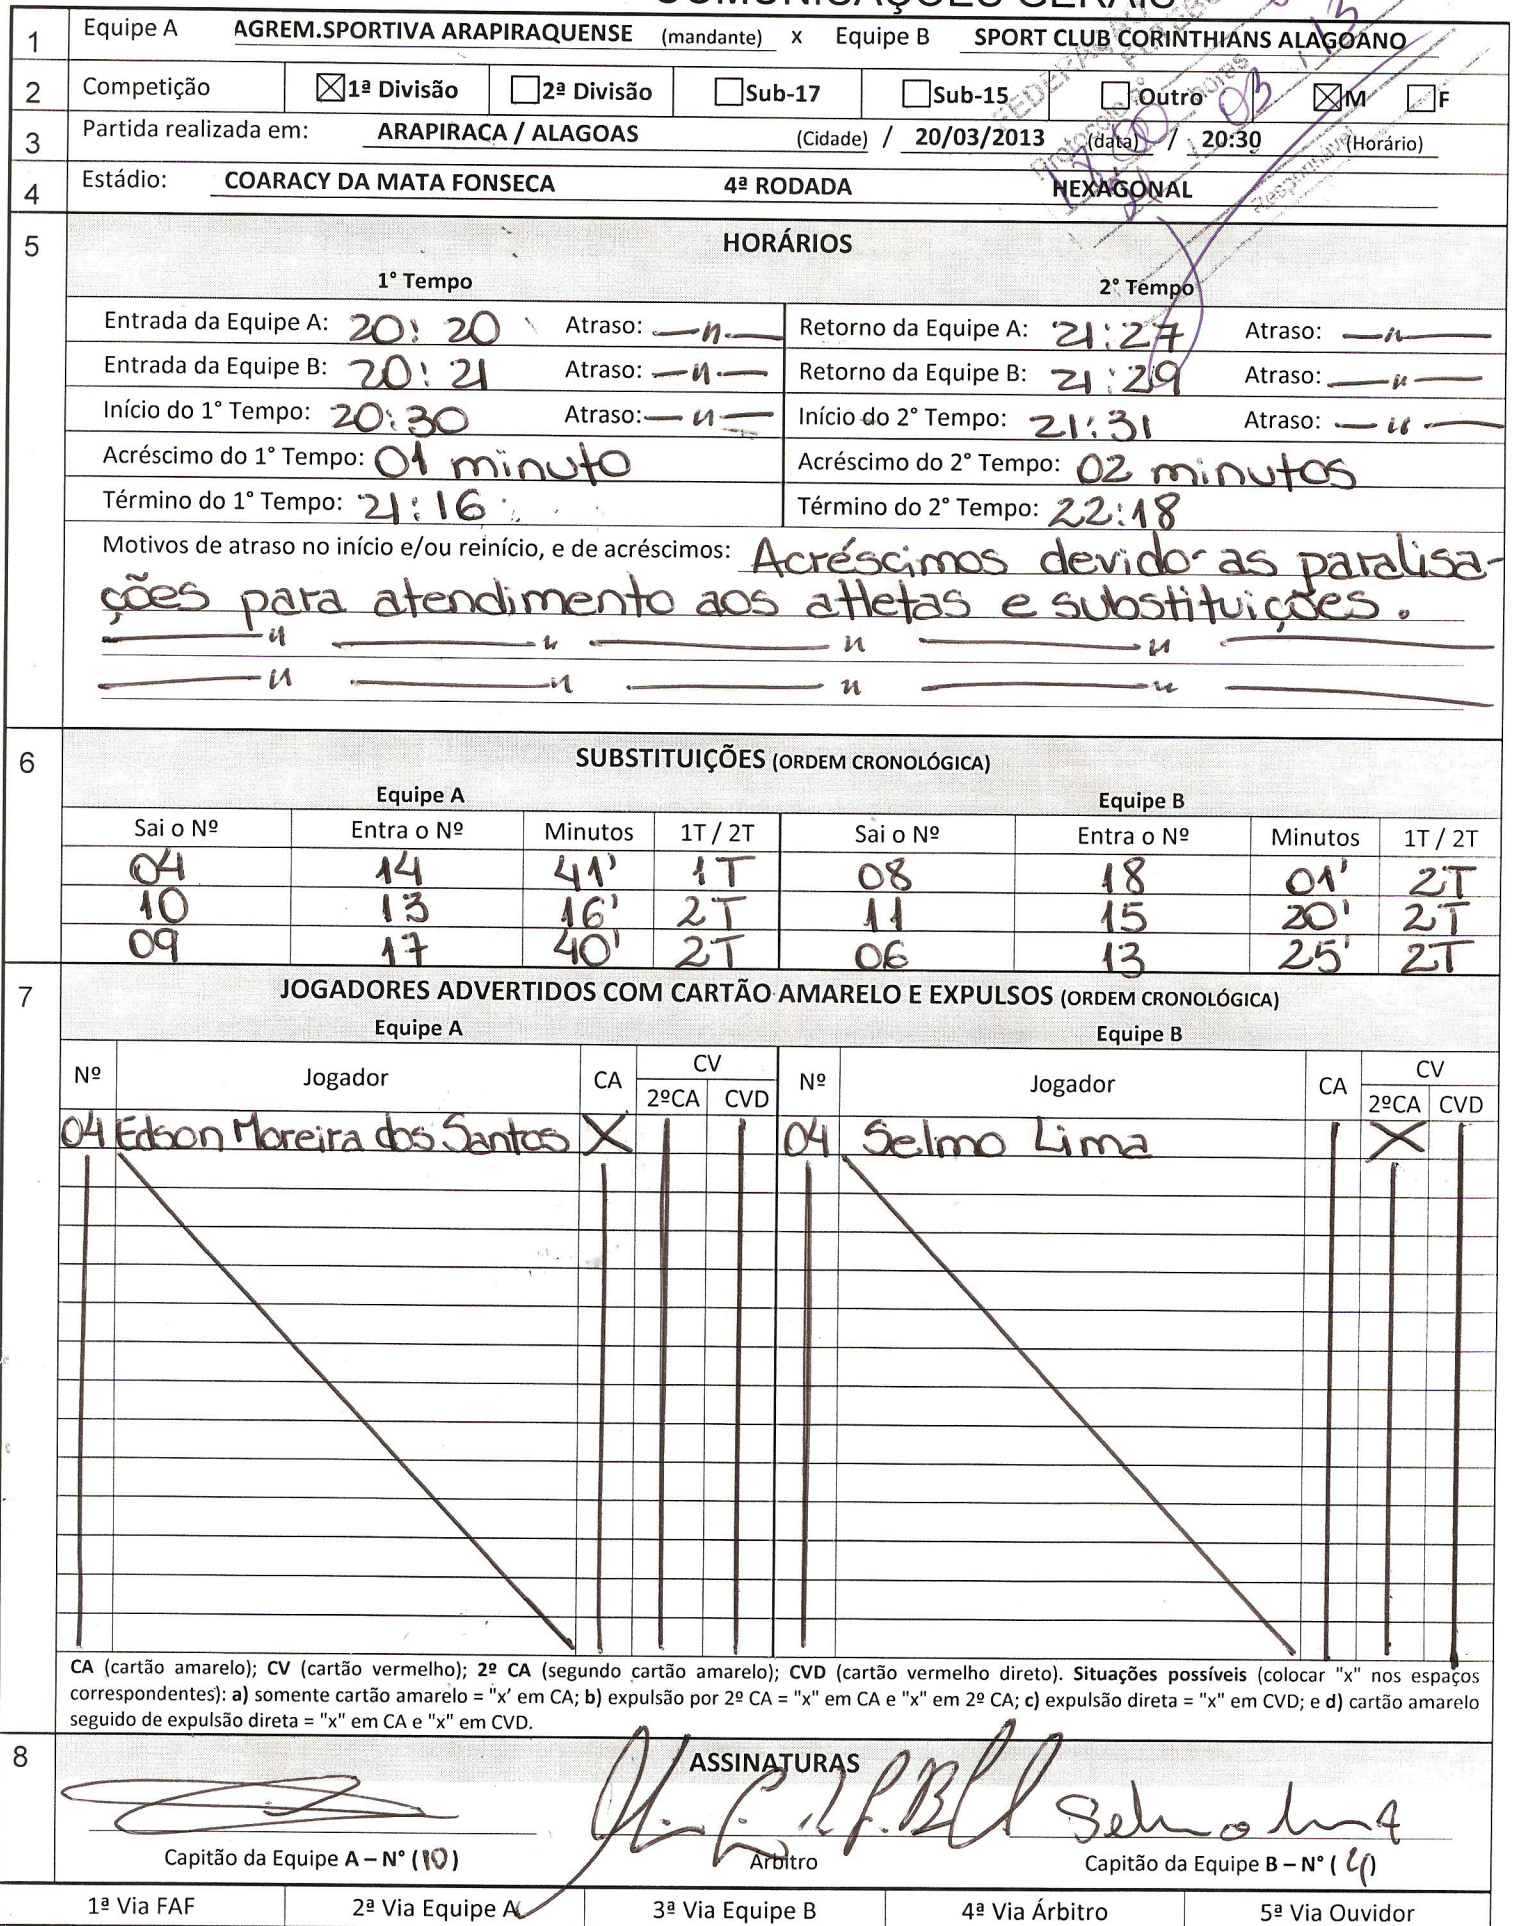 COMUNICAÇÕES GERAIS
1 Equipe A AGREM.SPORTIVA ARAPIRAQUENSE (mandante) x Equipe B SPORT CLUB CORINTHIANS ALAGOANO
2 Competição ☒1ª Divisão ☐2ª Divisão ☐Sub-17 ☐Sub-15 ☐Outro ☒M ☐F
3 Partida realizada em: ARAPIRACA / ALAGOAS (Cidade) / 20/03/2013 (data) / 20:30 (Horário)
4 Estádio: COARACY DA MATA FONSECA 4ª RODADA HEXAGONAL
5 HORÁRIOS
1° Tempo 2° Tempo
Entrada da Equipe A: 20:20 Atraso: —"— Retorno da Equipe A: 21:27 Atraso: —"—
Entrada da Equipe B: 20:21 Atraso: —"— Retorno da Equipe B: 21:29 Atraso: —"—
Início do 1° Tempo: 20:30 Atraso: —"— Início do 2° Tempo: 21:31 Atraso: —"—
Acréscimo do 1° Tempo: 01 minuto Acréscimo do 2° Tempo: 02 minutos
Término do 1° Tempo: 21:16 Término do 2° Tempo: 22:18
Motivos de atraso no início e/ou reinício, e de acréscimos: Acréscimos devido as paralisa-
ções para atendimento aos atletas e substituições.
6 SUBSTITUIÇÕES (ORDEM CRONOLÓGICA)
Equipe A Equipe B
Sai o Nº Entra o Nº Minutos 1T / 2T Sai o Nº Entra o Nº Minutos 1T / 2T
04 14 41' 1T 08 18 01' 2T
10 13 16' 2T 11 15 20' 2T
09 17 40' 2T 06 13 25' 2T
7 JOGADORES ADVERTIDOS COM CARTÃO AMARELO E EXPULSOS (ORDEM CRONOLÓGICA)
Equipe A Equipe B
Nº Jogador CA CV Nº Jogador CA CV
2ºCA CVD 2ºCA CVD
04 Edson Moreira dos Santos X 04 Selmo Lima X
CA (cartão amarelo); CV (cartão vermelho); 2º CA (segundo cartão amarelo); CVD (cartão vermelho direto). Situações possíveis (colocar "x" nos espaços
correspondentes): a) somente cartão amarelo = "x' em CA; b) expulsão por 2º CA = "x" em CA e "x" em 2º CA; c) expulsão direta = "x" em CVD; e d) cartão amarelo
seguido de expulsão direta = "x" em CA e "x" em CVD.
8 ASSINATURAS
Capitão da Equipe A – N° (10) Árbitro Capitão da Equipe B – N° (4)
1ª Via FAF 2ª Via Equipe A 3ª Via Equipe B 4ª Via Árbitro 5ª Via Ouvidor